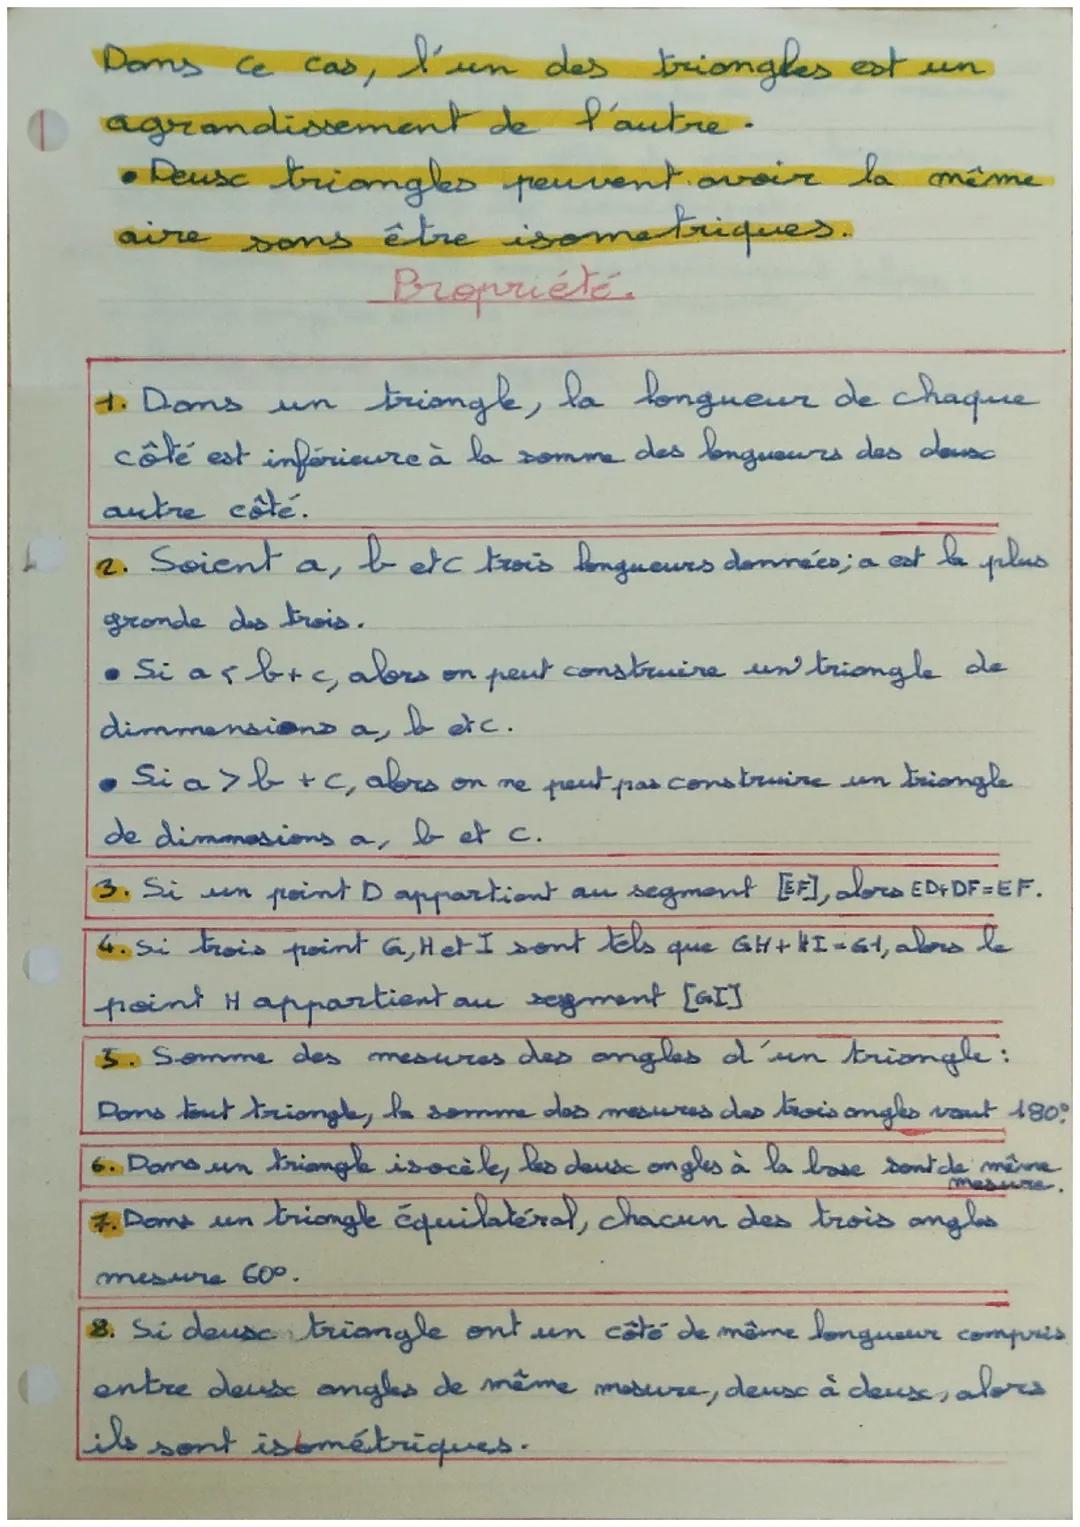 Dans ce cas, l'un des triangles est un
agrandissement de l'autre.
• Deux triangles peuvent avoir la même
aire sans être isometriques.
Propriété.
1. Dans un triangle, la longueur de chaque
côté est inférieure à la somme des longueurs des deux
autre côté.
2. Soient a, b et c trois longueurs données; a est la plus
grande des trois.
• Si a < b + c, alors on peut construire un triangle de
dimmensions a, b et c.
• Si a > b + c, alors on ne peut pas construire un triangle
de dimmesions a, b et c.
3. Si un point D appartient au segment [EF], alors ED+DF=EF.
4. Si trois point G, H et I sont tels que GH + HI = GI, alors le
point H appartient au segment [GI]
5. Somme des mesures des angles d'un triangle :
Dans tout triangle, la somme des mesures des trois angles vaut 180°
6. Dans un triangle isocèle, les deux angles à la base sont de même
mesure.
7. Dans un triangle équilatéral, chacun des trois angles
mesure 60°.
8. Si deux triangle ont un côté de même longueur compris
entre deux angles de même mesure, deux à deux, alors
ils sont isométriques.